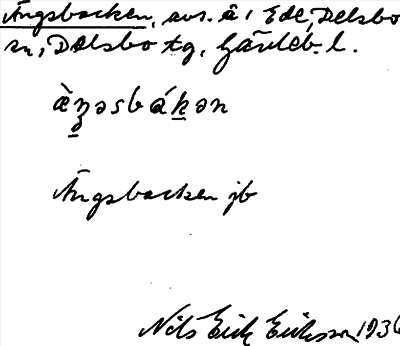 Ängsbacken, avs. å i Ede, Delsbo
sn, Delsbo tg, Gävleb. l.
æ̀ŋəsbákən
Ängsbacken jb
Nils Erik Eriksson 1936